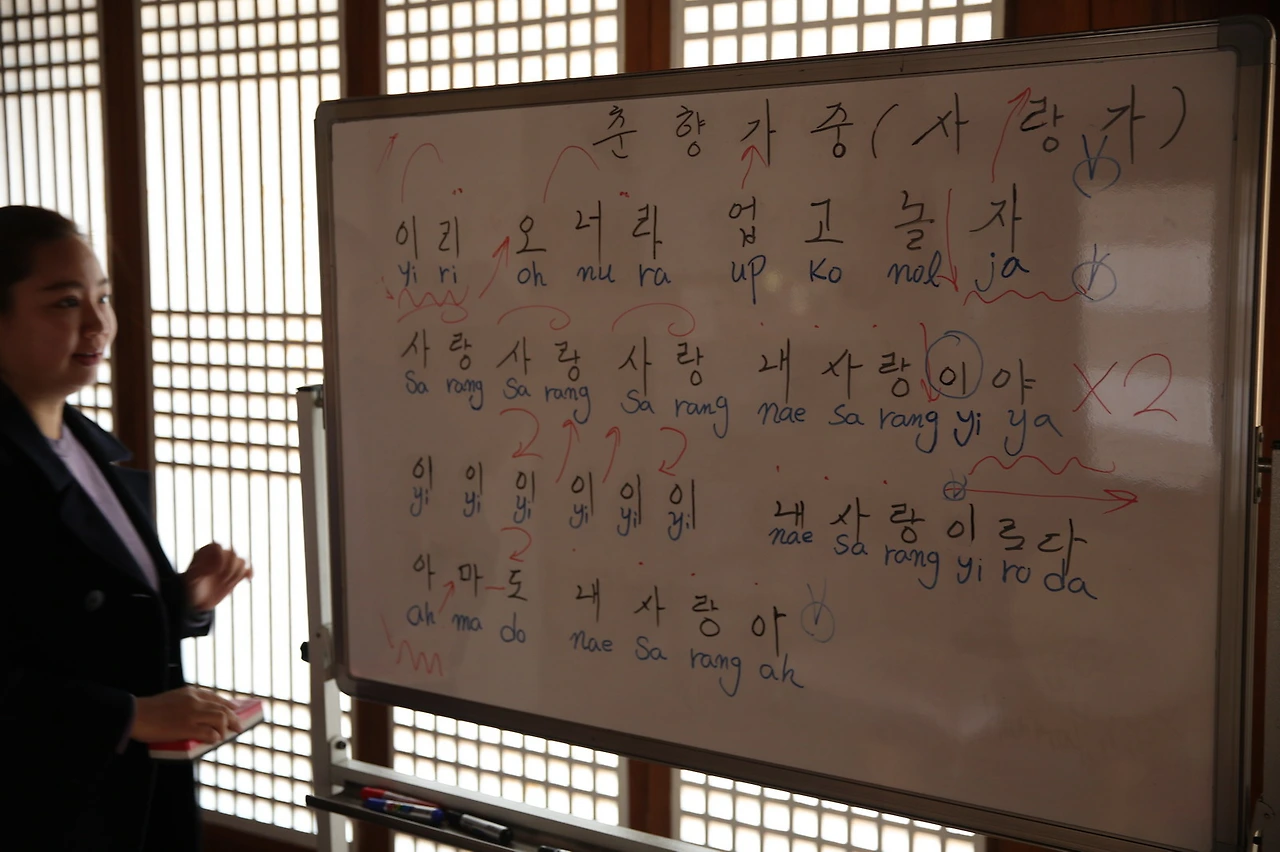 춘 향 가 중 ( 사 랑 가 )
이 리 오 너 라 업 고 놀 자
yi ri oh nu ra up ko nol ja
사 랑 사 랑 사 랑 내 사 랑 이 야 X2
Sa rang Sa rang Sa rang nae Sa rang yi ya
이 이 이 이 이 이 내 사 랑 이 로 다
yi yi yi yi yi yi nae Sa rang yi ro da
아 마 도 내 사 랑 아
ah ma do nae Sa rang ah